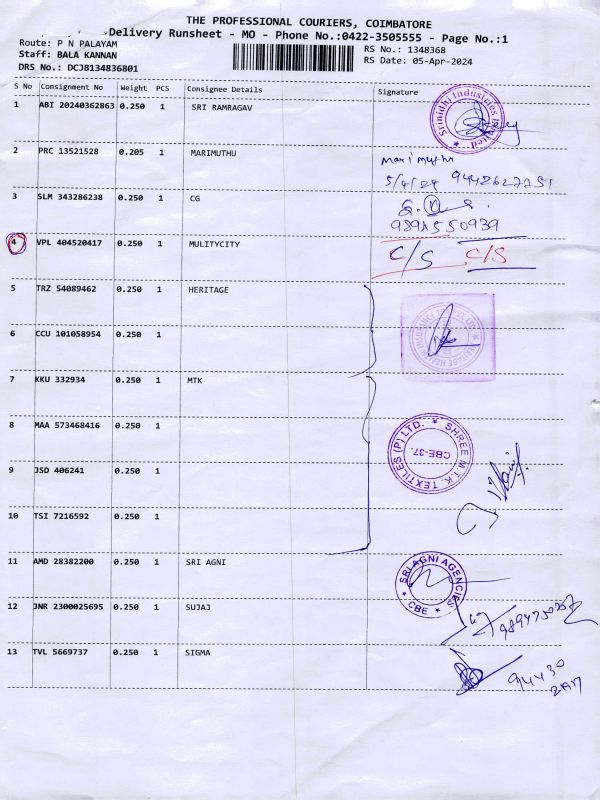 THE PROFESSIONAL COURIERS, COIMBATORE
Delivery Runsheet - MO - Phone No.:0422-3505555 - Page No.:1
Route: P N PALAYAM
Staff: BALA KANNAN
DRS No.: DCJB134836801
RS No.: 1348368
RS Date: 05-Apr-2024
S No Consignment No Weight PCS Consignee Details Signature
1 ABI 20240362863 0.250 1 SRI RAMRAGAV
Srinidhi Industries
2 PRC 13521528 0.205 1 MARIMUTHU
marimuthu
5/4/24
3 SLM 343286238 0.250 1 CG
4 VPL 404520417 0.250 1 MULITYCITY
C/S C/S
5 TRZ 54089462 0.250 1 HERITAGE
6 CCU 101058954 0.250 1
7 KKU 332934 0.250 1 MTK
8 MAA 573468416 0.250 1
SHREE M.T.K. TEXTILES (P) LTD.
CBE-37.
9 JSD 406241 0.250 1
10 TSI 7216592 0.250 1
11 AMD 28382200 0.250 1 SRI AGNI
SRI AGNI AGENCIES
CBE
12 JNR 2300025695 0.250 1 SUJAJ
13 TVL 5669737 0.250 1 SIGMA
94430